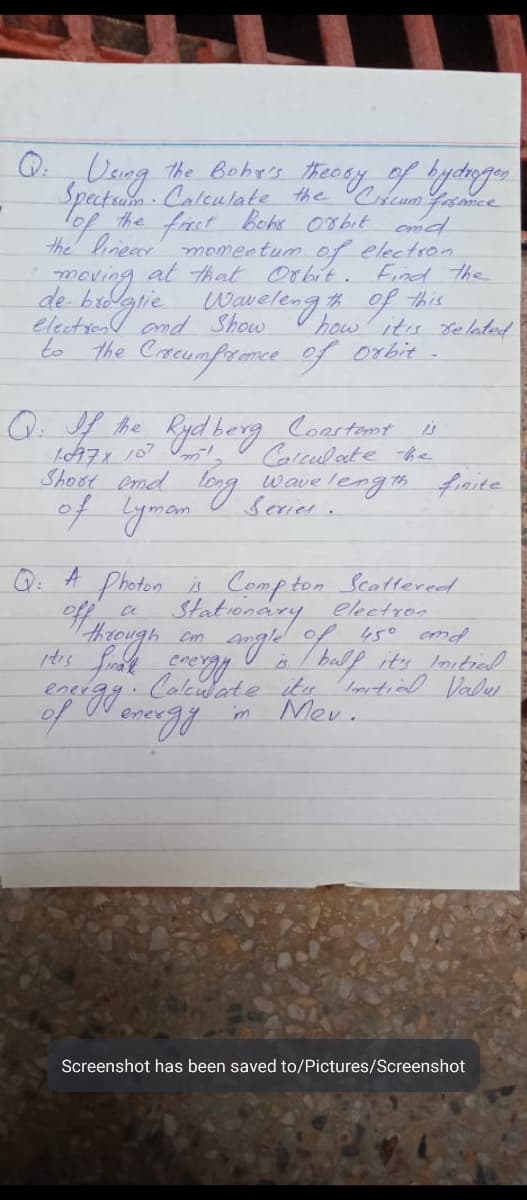 Q: Using the Bohr's theory of hydrogen
Spectrum. Calculate the Circumfrence
of the first Bohr Orbit and
the linear momentum of electron
moving at that Orbit. Find the
de-broglie Wavelength of this
electron and Show how itis related
to the Circumfrance of orbit.
Q: If the Rydberg Constant is
1.097x10⁷ m⁻¹, Calculate the
Short and long wavelength finite
of lyman Series.
Q: A Photon is Compton Scattered
off a Stationary electron
through an angle of 45° and
itis final energy is half it's Initial
energy. Calculate its Initial Value
of energy in Mev.
Screenshot has been saved to/Pictures/Screenshot